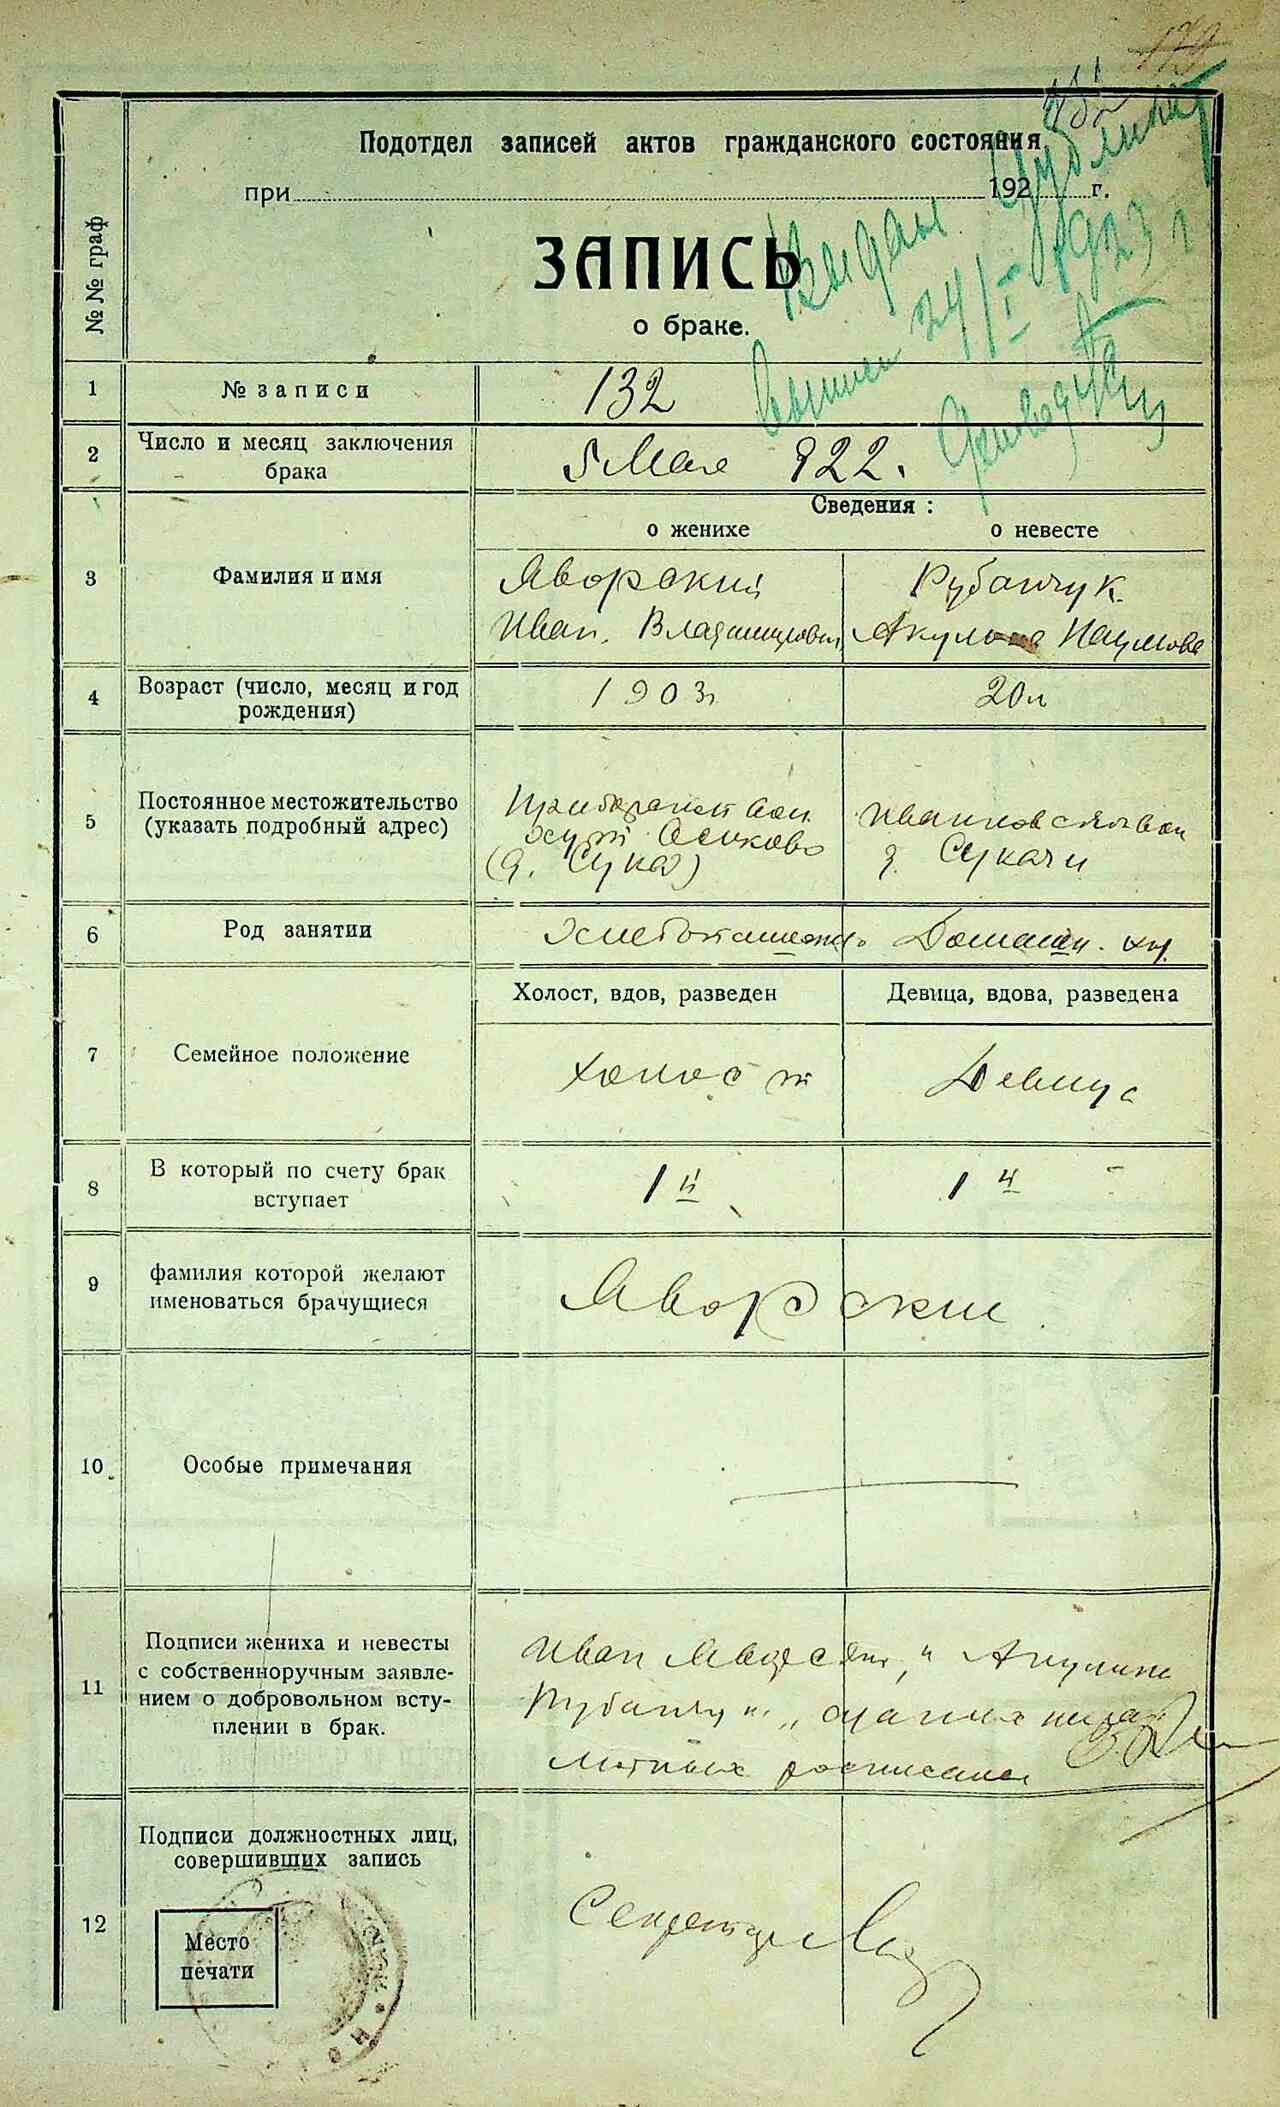 179
Подотдел записей актов гражданского состояния
при 192 г.
Выданы дубликат
24/I 1923 г
№ № граф
ЗАПИСЬ
о браке.
1 № записи 132
2 Число и месяц заключения брака 5 Мая 922.
Сведения:
о женихе о невесте
3 Фамилия и имя
Яворский Рубанчук.
Иван. Владимирович Акулина Наумова
4 Возраст (число, месяц и год рождения) 1903 г. 20 л
5 Постоянное местожительство
(указать подробный адрес)
вол. Ивановской вол
хут Осиково д. Сукачи
(д. Сука)
6 Род занятии Хлебопашец Домашн. хоз.
Холост, вдов, разведен Девица, вдова, разведена
7 Семейное положение холост Девица
8 В который по счету брак
вступает 1й 1й
9 фамилия которой желают
именоваться брачущиеся Яворские
10 Особые примечания
11 Подписи жениха и невесты
с собственноручным заявле-
нием о добровольном всту-
плении в брак.
Иван и Акулина
12 Подписи должностных лиц,
совершивших запись
Место
печати
Секретарь